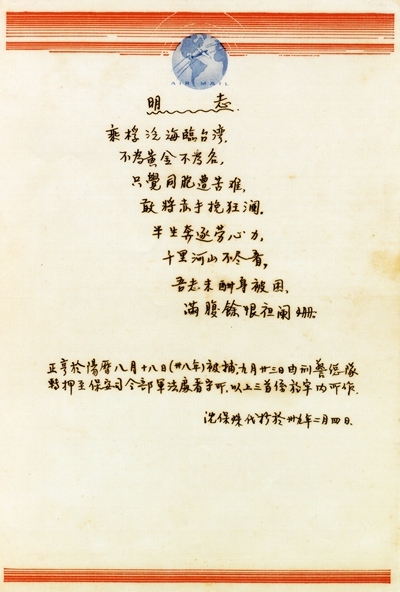 AIR MAIL
明 志
乘桴泛海臨台灣,
不為黃金不為名,
只覺同胞遭苦難,
敢將赤手挽狂瀾,
半生奔逐勞心力,
十里河山不尽看,
吾志未酬身被困,
滿腹餘恨袒闌珊.
正亨於陽曆八月十八日(卅八年)被捕,九月廿三日由刑警總隊
轉押至保安司令部軍法處看守所.以上三首係於牢內所作.
沈保珠代抄於卅九年二月四日.